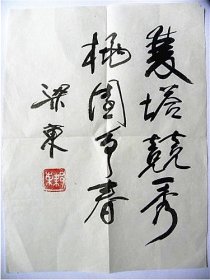 雙塔競秀
桃園争春
梁東